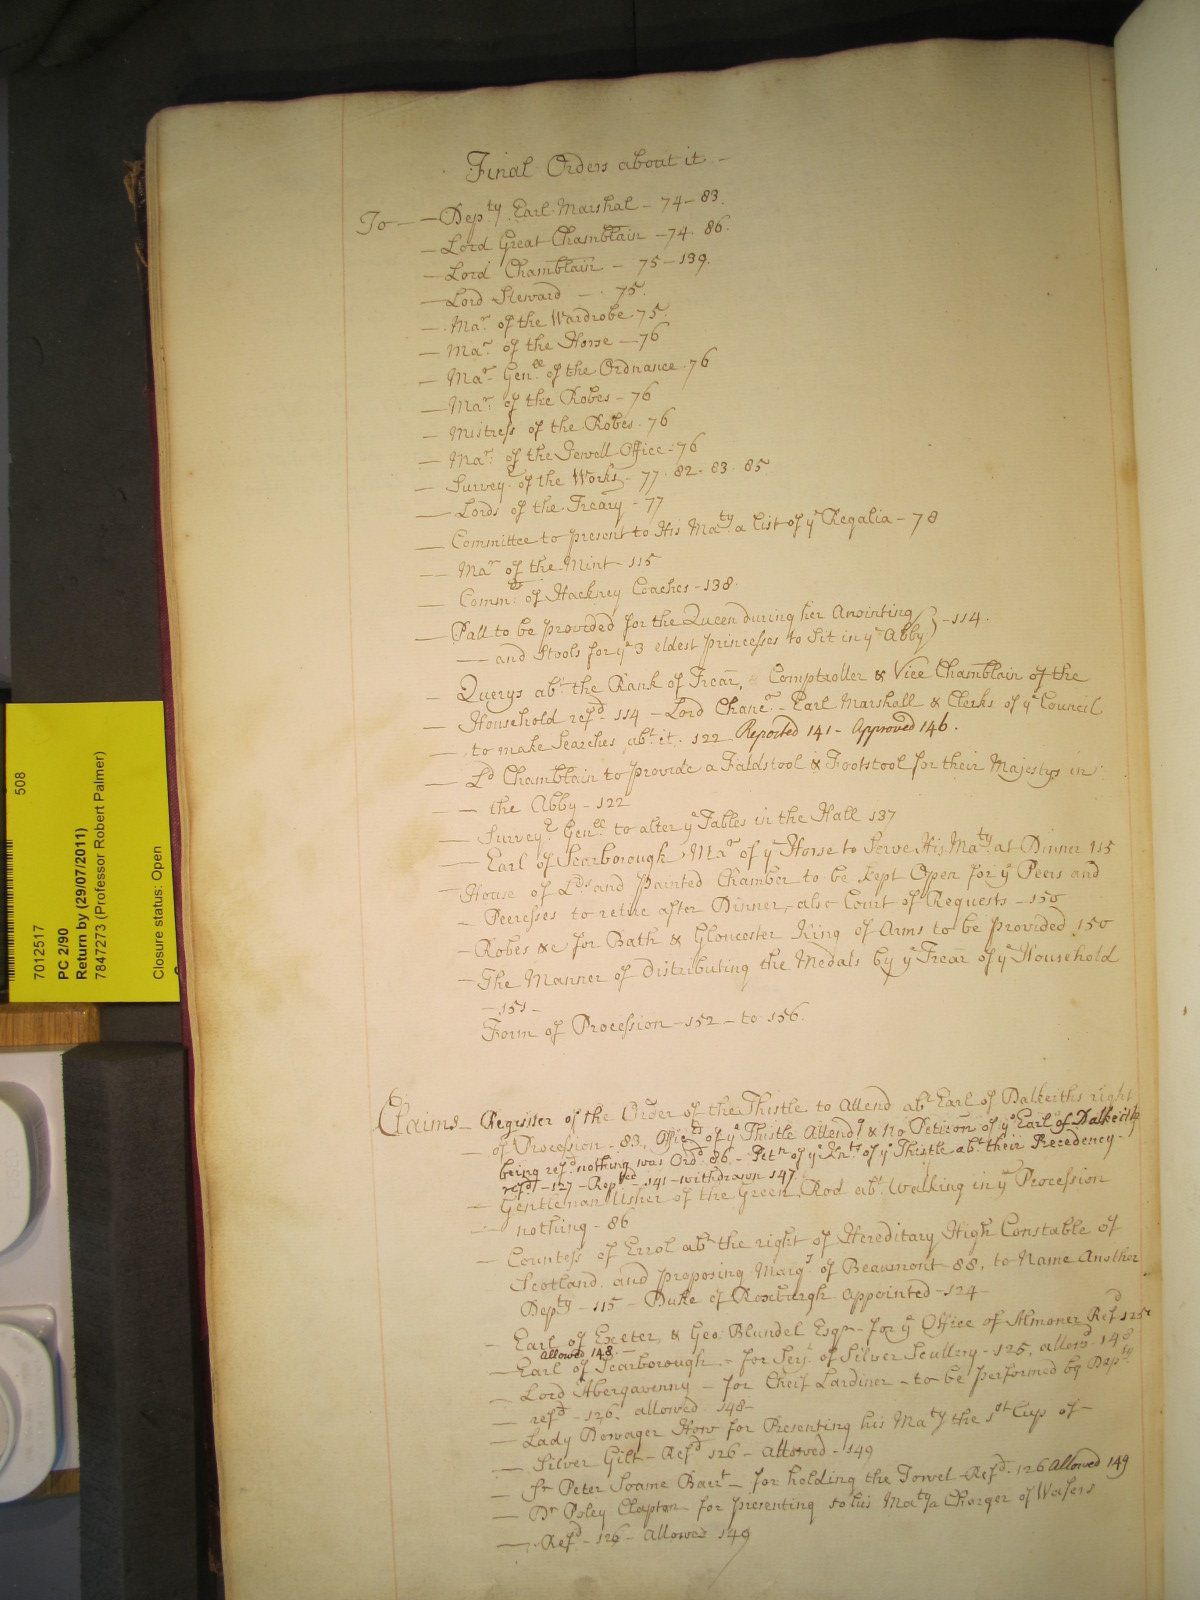 Final Orders about it -
To - - Dep.ty Earl Marshal - 74 - 83.
- Lord Great Chamblain - 74. 86.
- Lord Chamblain - 75 - 139.
- Lord Steward - 75.
- Mar. of the Wardrobe 75.
- Mar. of the Horse - 76
- Mar. Gen.ll of the Ordnance 76
- Mar. of the Robes - 76
- Mistress of the Robes. 76
- Mar. of the Jewell Office - 76
- Survey.r of the Works - 77. 82. 83. 85.
- Lords of the Treary - 77
- Committee to present to His Maty a list of ye Regalia - 78
- Mar of the Mint - 115
- Comm.rs of Hackney Coaches - 138.
- Pall to be provided for the Queen during her Anointing } - 114.
- and Stools for ye 3 eldest Princesses to Sit in ye Abby
- Querys abt. the Rank of Trear, Comptroller & Vice Chamblain of the
- Household refd. 114 - Lord Chancr. - Earl Marshall & Clerks of ye Council
- to make Searches abt. it. 122 Reported 141 - Approved 146.
- Ld Chamblain to provide a Faldstool & Footstool for their Majestys in
- the Abby - 122
- Surveyr. Genll. to alter ye Tables in the Hall 137
- Earl of Scarborough Mar of ye Horse to Serve His Maty. at Dinner 115
- House of Lds and painted Chamber to be kept Open for ye Peers and
- Peeresses to retire after Dinner, also Court of Requests - 150
- Robes &c for Bath & Gloucester King of Arms to be provided 150
- The Manner of distributing the Medals by ye Trear of ye Household
- 151 -
Form of Procession - 152 - to 156.
Claims - Register of the Order of the Thistle to Attend abt Earl of Dalkeiths right
- of Procession - 83, Officrs of ye Thistle Attendd & no Peticon of ye Earl of Dalkeith
being refd. nothing was Ordd. 86 - Petn of ye Knts of ye Thistle abt. their Precedency -
refd. - 127 - Reptd - 141 - withdrawn 147
- Gentleman Usher of the Green Rod abt. walking in ye Procession
- nothing - 86
- Countess of Errol abt the right of Hereditary High Constable of
Scotland, and proposing Marqs. of Beaumont 88, to Name Another
Depty - 115 - Duke of Roxburgh appointed - 124 -
- Earl of Exeter, & Geo: Blundel Esqr - for ye Office of Almoner Refd 125
allowed 148 -
- Earl of Scarborough - for Serjt. of Silver Scullry - 125, allowd. 148
- Lord Abergavenny - for Cheif Lardiner - to be performed by Depty.
- refd - 126. allowed - 148 -
- Lady Dowager How for Presenting his Maty the 1st Cup of -
- Silver Gilt - Refd 126 - Allowed - 149
- Sr Peter Soame Barrt - for holding the Towel - Refd. 126 Allowed 149
- Dr Poley Clapton - for presenting to his Maty a Charger of Wafers
- Refd. - 126 - Allowed 149
508
7012517
PC 2/90
Return by (29/07/2011)
7847273 (Professor Robert Palmer)
Closure status: Open